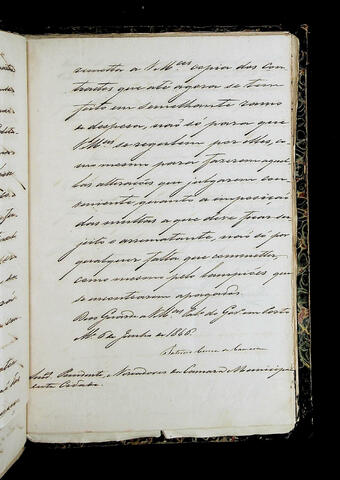 remetto a VMces copia dos Con-
tractos que até agora se tem
feito em semelhante ramo
de despesa, não só para que
VMces se regulem por elles, co-
mo mesmo para fazerem aquel-
las alterações que julgarem con-
veniente, quanto a imposição
das multas a que deve ficar su-
jeito o arrematante, não só por
qualquer falta que commetter,
como mesmo pelos lampiões que
se encontrarem apagados.
Deos Guarde a VMces Pal. do Gov. em Porto
Al. 6 de Junho de 1846.
Patricio Correa da Camara
Snres. Presidente e Vereadores da Camara Municipal
desta Cidade.